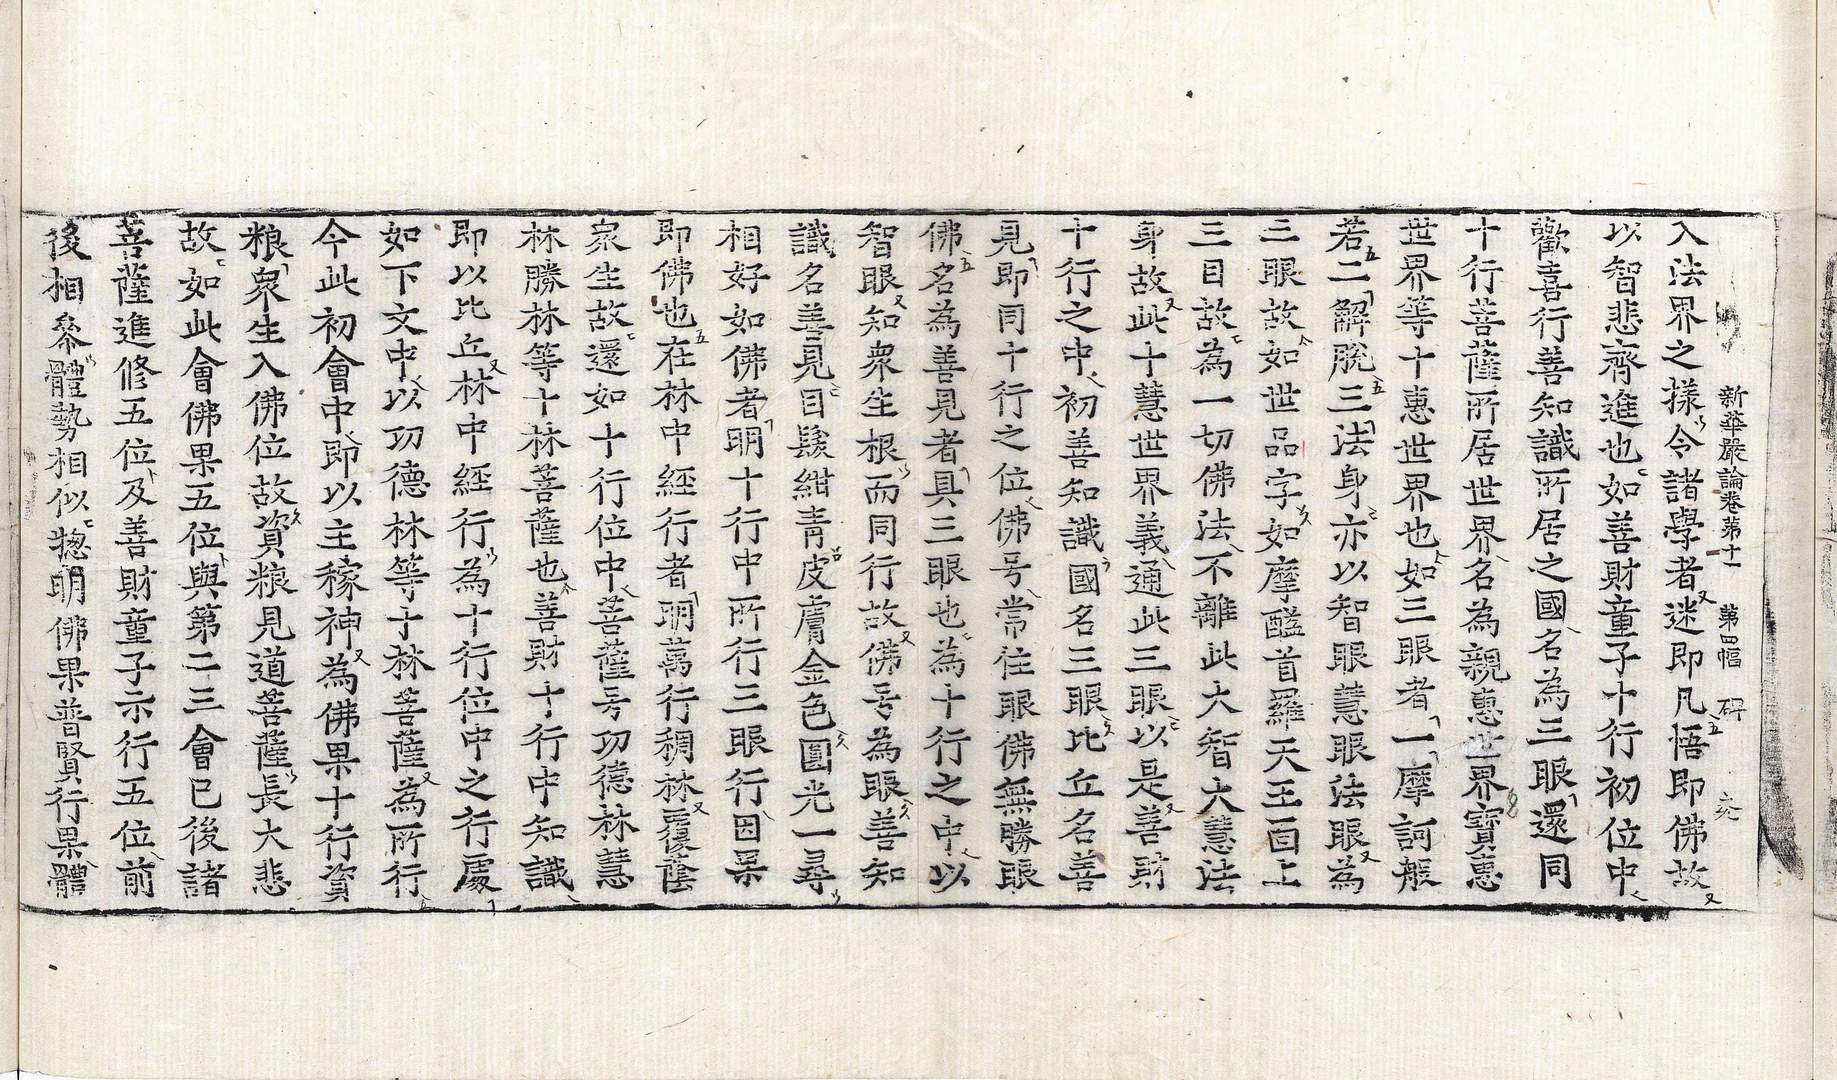 新華嚴論卷第十一　第四幅　碑
入法界之㨾令諸學者迷即凡悟即佛故
以智悲齊進也如善財童子十行初位中
歡喜行善知識所居之國名為三眼還同
十行菩薩所居世界名為親惠世界寶惠
世界等十惠世界也如三眼者一摩訶般
若二解脫三法身亦以智眼慧眼法眼為
三眼故如世品字如摩醯首羅天王面上
三目故為一切佛法不離此大智大慧法
身故此十慧世界義通此三眼以是善財
十行之中初善知識國名三眼比丘名善
見即同十行之位佛号常住眼佛無勝眼
佛名為善見者具三眼也為十行之中以
智眼知衆生根而同行故佛号為眼善知
識名善見目髮紺青皮膚金色圓光一尋
相好如佛者明十行中所行三眼行因果
即佛也在林中經行者明萬行稠林覆蔭
衆生故還如十行位中菩薩号功德林慧
林勝林等十林菩薩也善財十行中知識
即以比丘林中經行為十行位中之行處
如下文中以功德林等十林菩薩為所行
今此初會中即以主稼神為佛果十行資
粮衆生入佛位故資粮見道菩薩長大悲
故如此會佛果五位與第二三會已後諸
菩薩進修五位及善財童子示行五位前
後相叅體勢相似揔明佛果普賢行果體